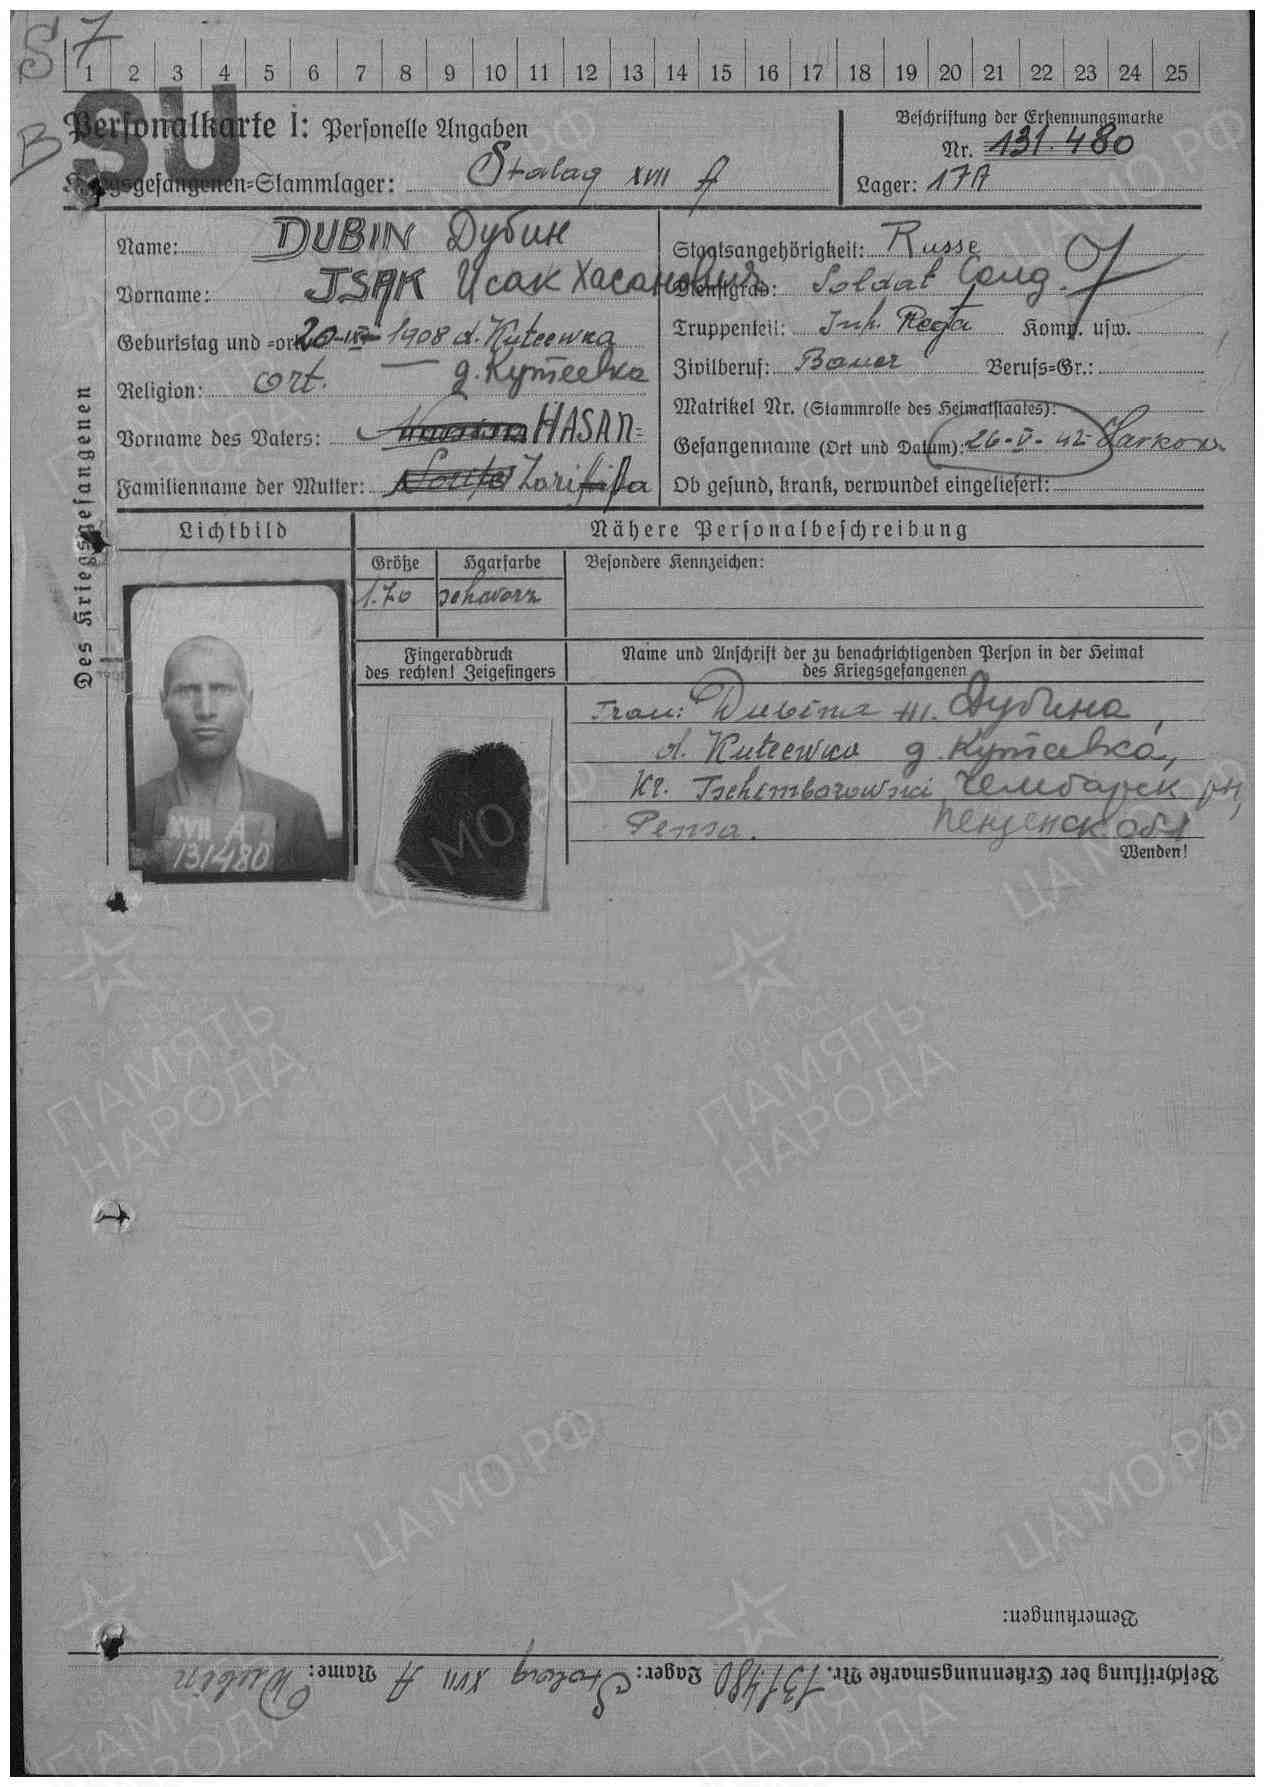 S 7
1 2 3 4 5 6 7 8 9 10 11 12 13 14 15 16 17 18 19 20 21 22 23 24 25
SU
B
Personalkarte I: Personelle Angaben
Kriegsgefangenen-Stammlager: Stalag XVII A
Beschriftung der Erkennungsmarke
Nr. 131.480
Lager: 17A
Des Kriegsgefangenen
Name: DUBIN Дубин
Vorname: ISAK Исак Хасанович
Geburtstag und =ort 20-IV-1908 d. Kuteewka
Religion: ort. — д. Кутеевка
Vorname des Vaters: HASAN=
Familienname der Mutter:
Staatsangehörigkeit: Russe
Dienstgrad: Soldat Солд.
Truppenteil: Inf. Regt. Komp. usw.
Zivilberuf: Bauer Berufs=Gr.:
Matrikel Nr. (Stammrolle des Heimatstaates):
Gefangennahme (Ort und Datum): 26-V-42 Harkow
Ob gesund, krank, verwundet eingeliefert:
Lichtbild
Nähere Personalbeschreibung
Größe Haarfarbe Besondere Kennzeichen:
1.70 schwarz
Fingerabdruck
des rechten! Zeigefingers
Name und Anschrift der zu benachrichtigenden Person in der Heimat
des Kriegsgefangenen
Frau: Dubina M. Дубина
d. Kuteewka д. Кутеевка,
Kr. Tschembarowski Чембарск рн,
Pensa. Пензенск обл
Wenden!
XVII A
131480
Bemerkungen:
Beschriftung der Erkennungsmarke Nr. 131480 Lager: Stalag XVII A Name: Dubin
ПАМЯТЬ
НАРОДА
1941-1945
ЦА МО РФ